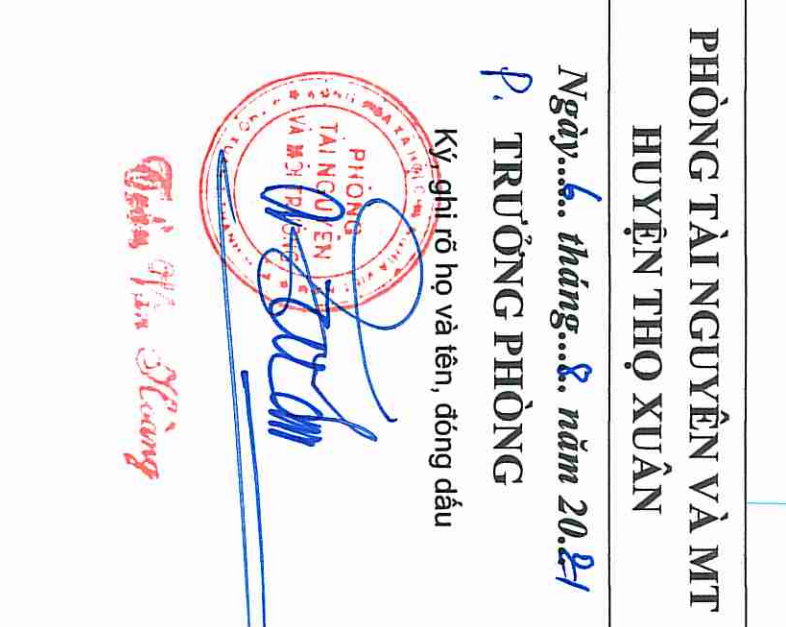 PHÒNG TÀI NGUYÊN VÀ MT
HUYỆN THỌ XUÂN
Ngày..6.. tháng..8.. năm 20.21
P. TRƯỞNG PHÒNG
Ký, ghi rõ họ và tên, đóng dấu
PHÒNG
TÀI NGUYÊN
VÀ MÔI TRƯỜNG
Văn Hoàng